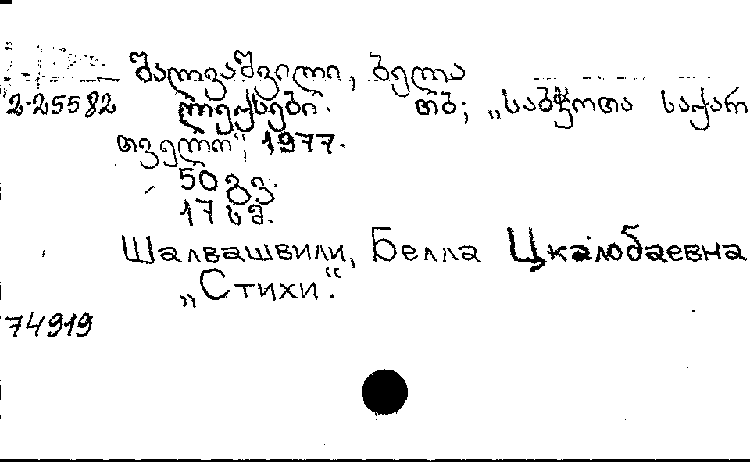 შალვაშვილი, ბელა
2-25582 ლექსები. თბ; „საბჭოთა საქარ
თველო", 1977.
50 გვ.
17 სმ.
Шалвашвили, Белла Цкалобаевна
„Стихи."
74919